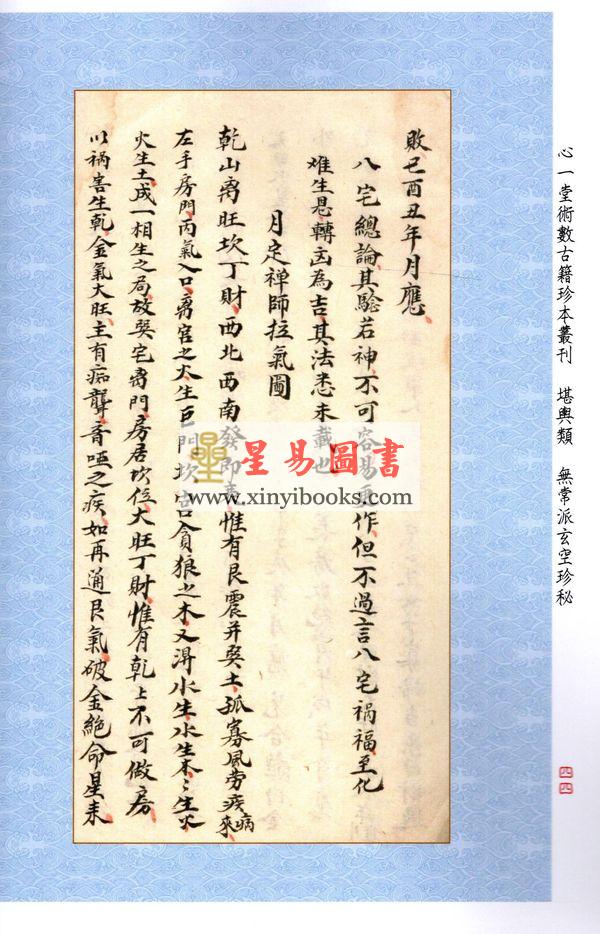 心一堂術數古籍珍本叢刊 堪輿類 無常派玄空珍秘
四四
敗巳酉丑年月應
八宅總論其驗若神不可容易更作但不過言八宅禍福至化
难生恳轉凶為吉其法悉未載也
月定禅師拉氣圖
乾山离旺坎丁財西北西南發即衰惟有艮震并巽土孤寡風劳疾病來
左手房門丙氣入口离宫之火生巨門坎宫貪狼之木又得水生水生木木生火
火生土成一相生之局故巽宅离門房居坎位大旺丁財惟有乾上不可做房
以禍害生乾金氣大旺主有痴聾音哑之疾如再通艮氣破金絕命星来
星易圖書
www.xinyibooks.com